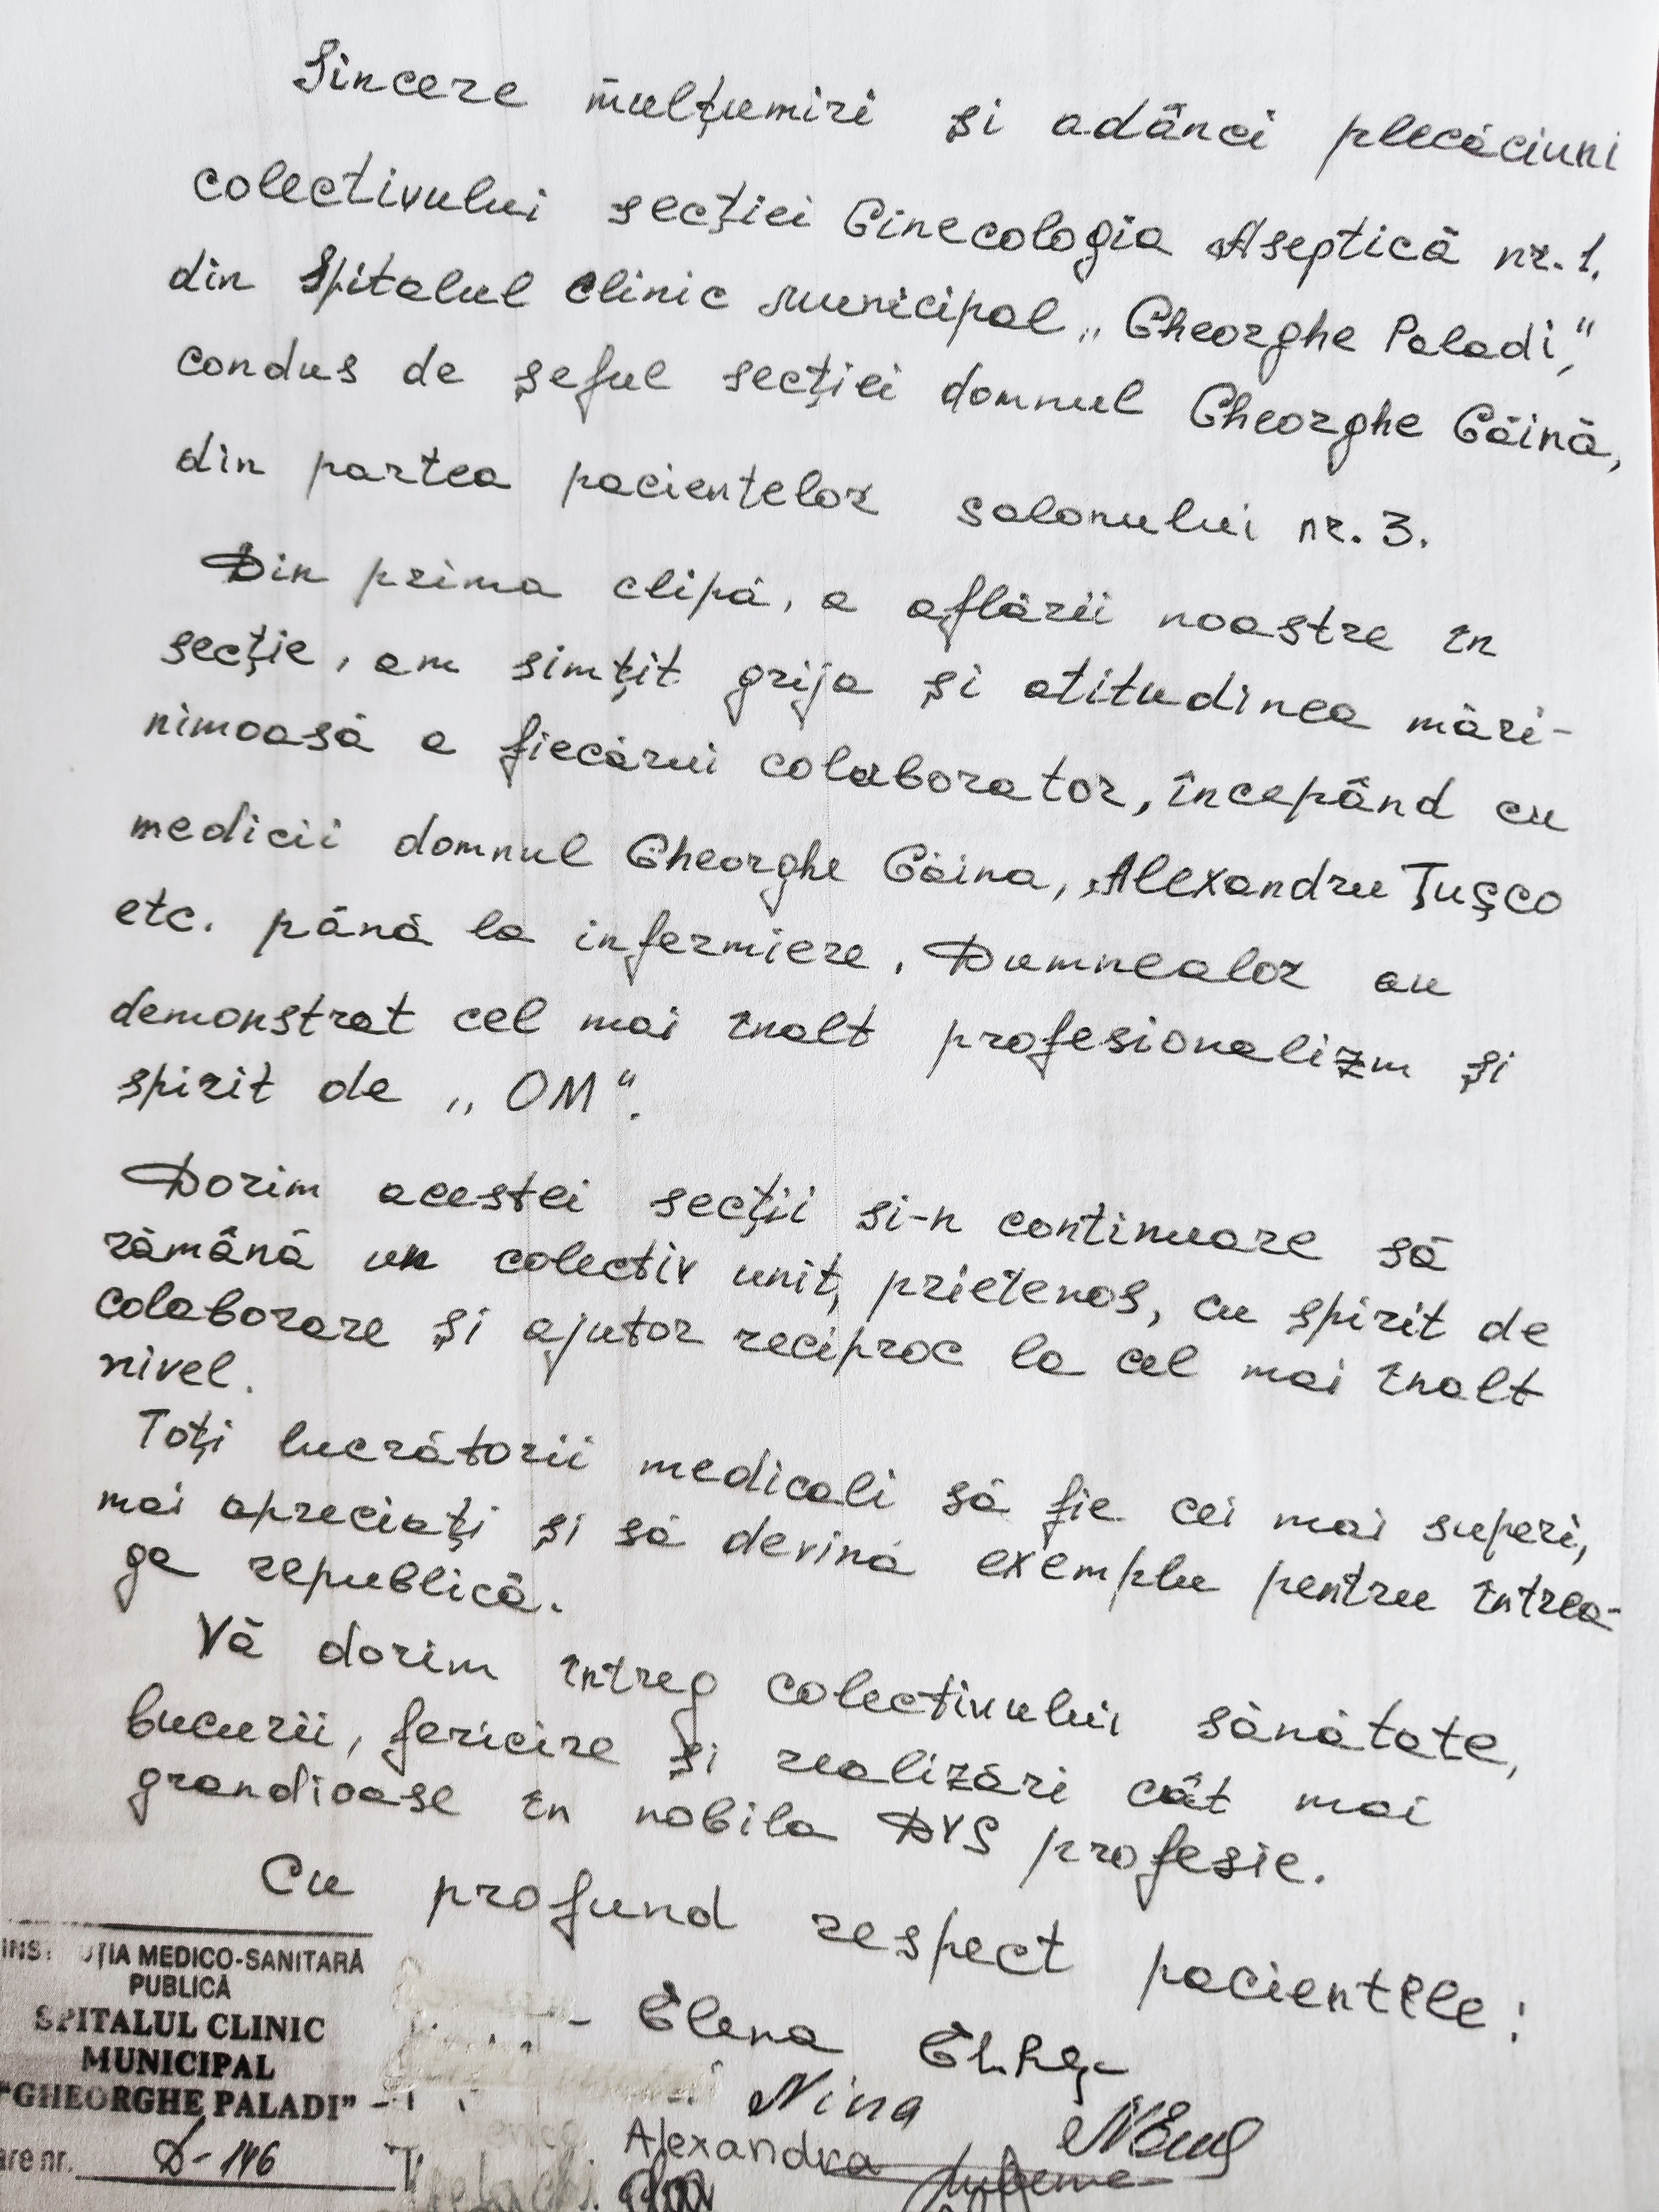 Sincere mulțumiri și adânci plecăciuni
colectivului secției Ginecologia Aseptică nr. 1.
din Spitalul Clinic Municipal „Gheorghe Paladi”,
condus de șeful secției domnul Gheorghe Găină,
din partea pacientelor salonului nr. 3.
Din prima clipă, a aflării noastre în
secție, am simțit grija și atitudinea mări-
nimoasă a fiecărui colaborator, începând cu
medicii domnul Gheorghe Găina, Alexandru Țușco
etc. până la infermiere. Dumnealor au
demonstrat cel mai înalt profesionalizm și
spirit de „OM”.
Dorim acestei secții si-n continuare să
rămână un colectiv unit, prietenos, cu spirit de
colaborare și ajutor reciproc la cel mai înalt
nivel.
Toți lucrătorii medicali să fie cei mai superi,
mai apreciați și să devină exemplu pentru întrea-
ga republică.
Vă dorim întreg colectivului sănătate,
bucurii, fericire și realizări cât mai
grandioase în nobila DVS profesie.
Cu profund respect pacientele:
- Elena
Nina
Alexandra
INS ȚIA MEDICO-SANITARĂ
PUBLICĂ
SPITALUL CLINIC
MUNICIPAL
"GHEORGHE PALADI"
are nr. D-146